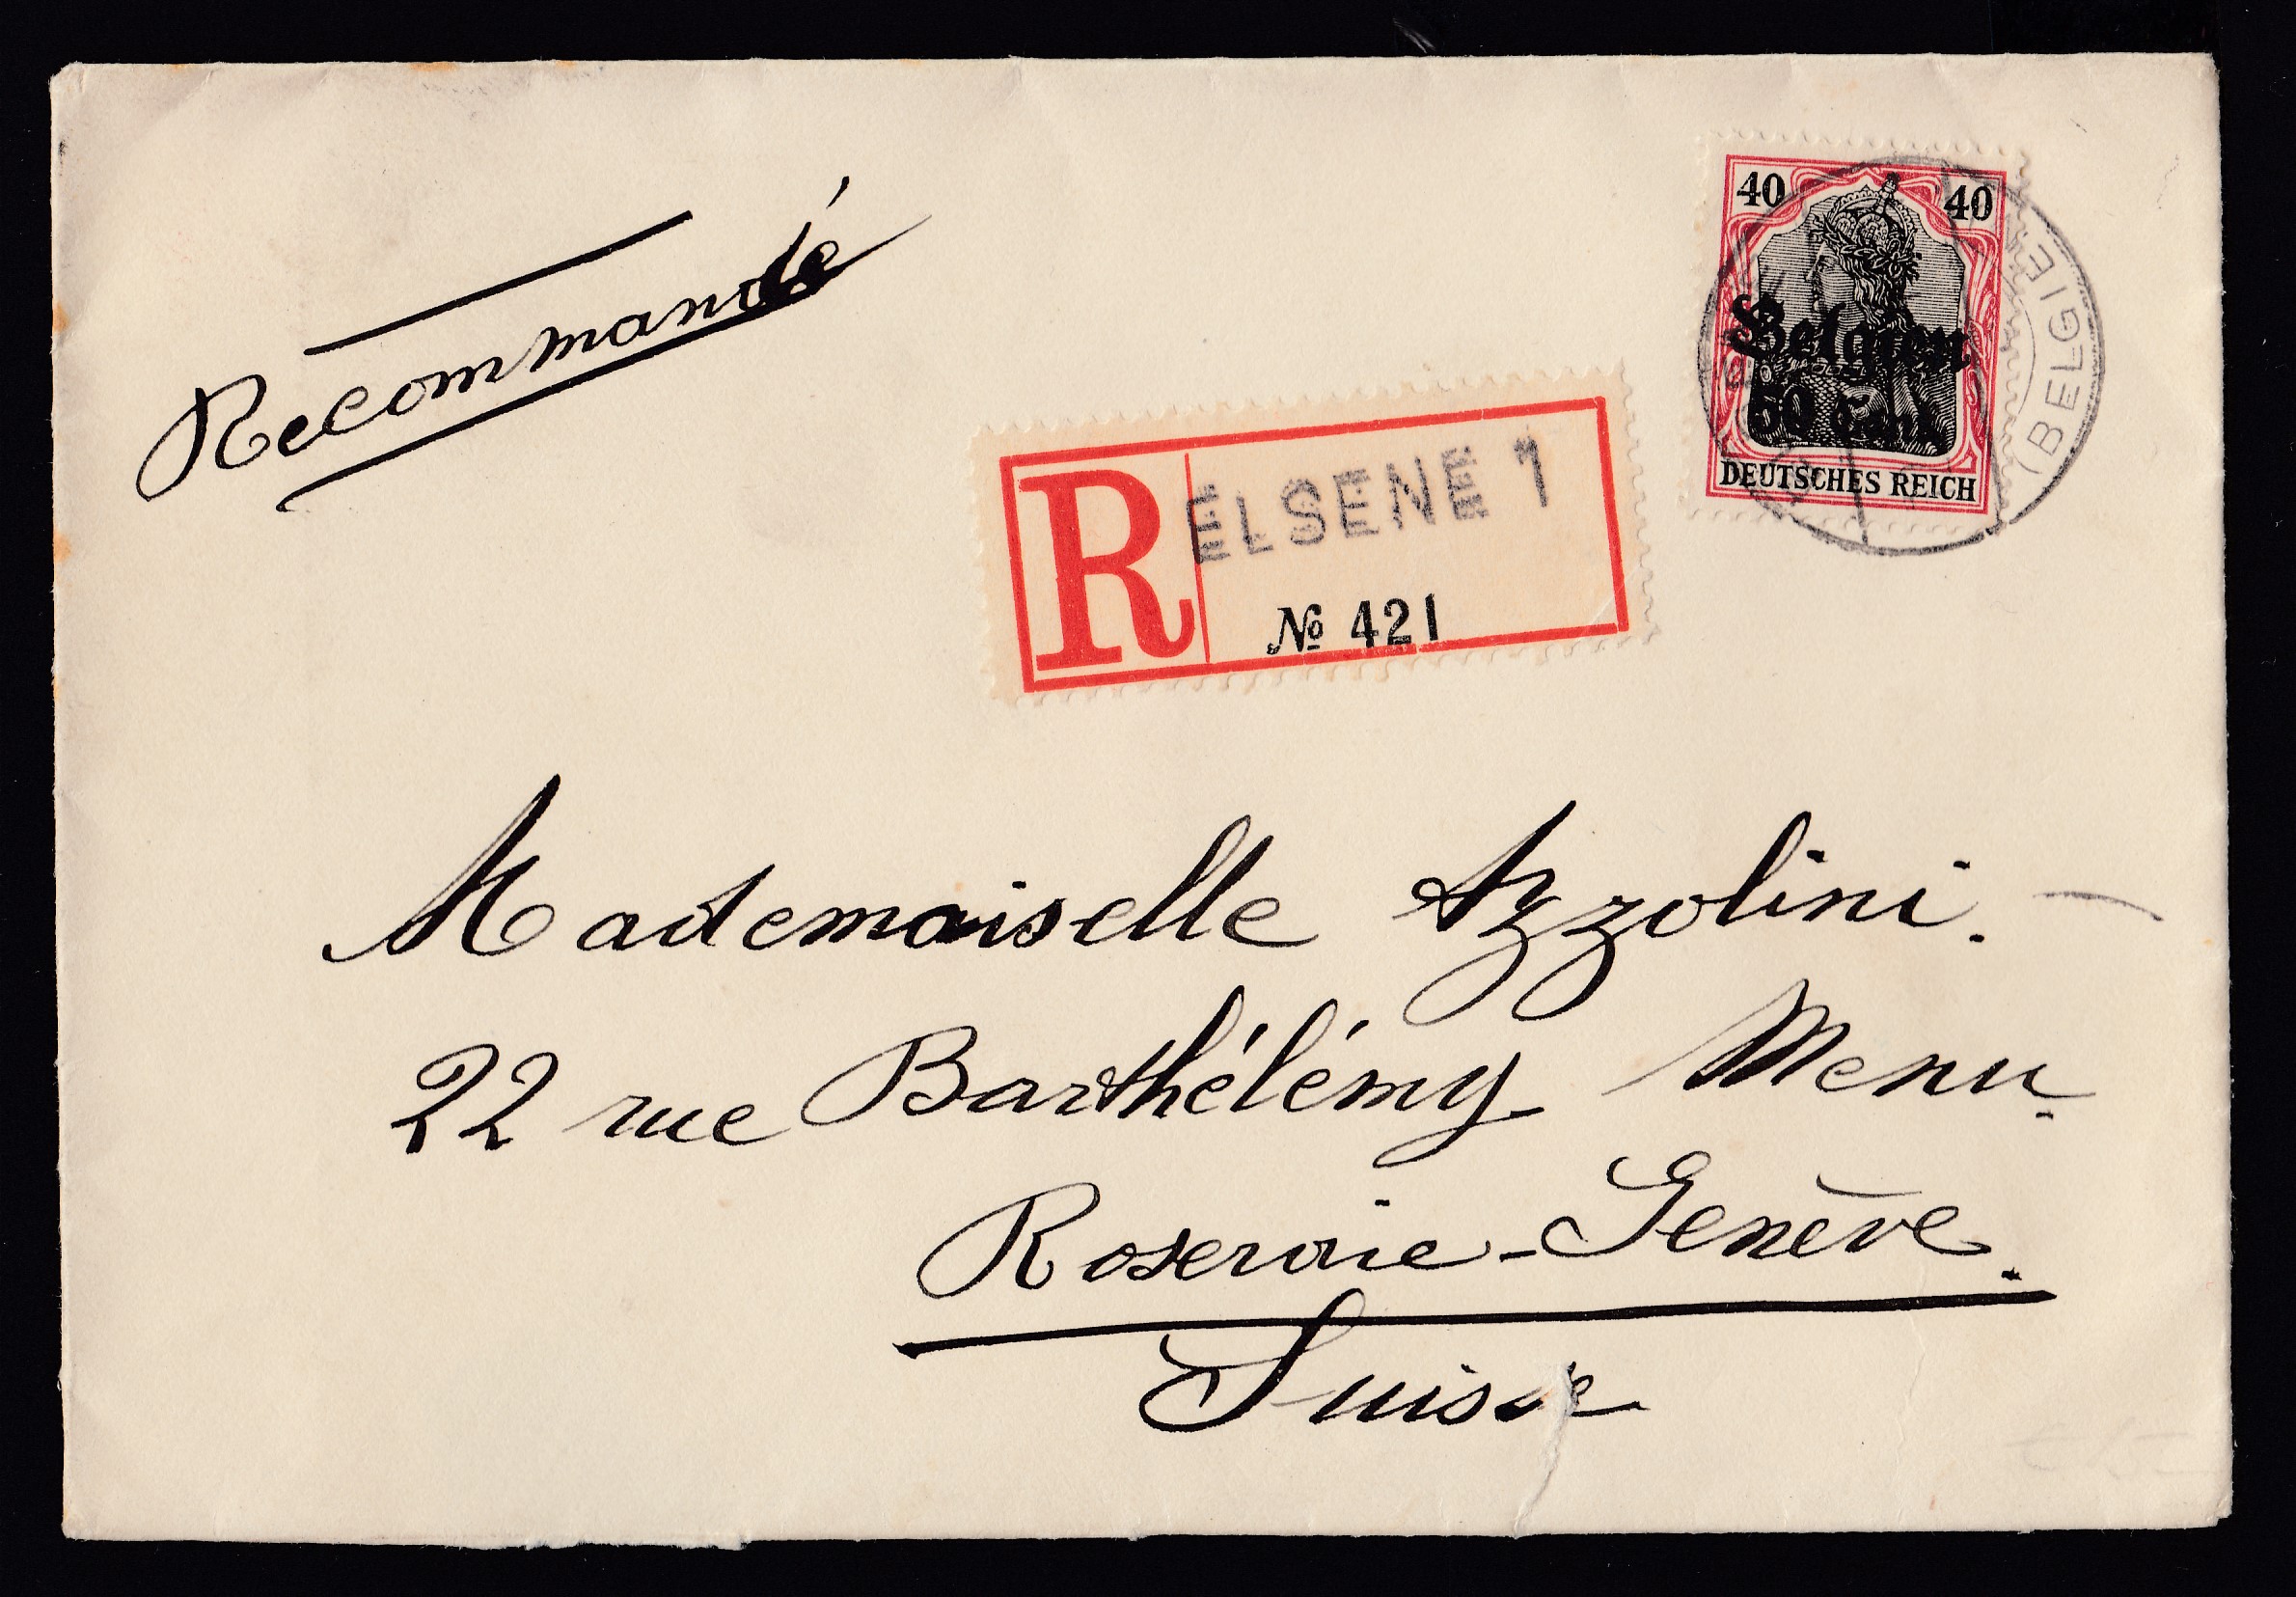 Recommandé
40 40
Belgien
50 Cent.
DEUTSCHES REICH
(BELGIE
R
ELSENE 1
№ 421
Mademoiselle Azzolini.
22 rue Barthélémy Menu.
Roseraie - Genève.
Suisse